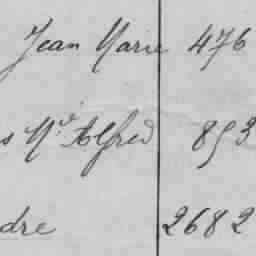 Jean Marie 476
s Mie Alfred 853
dre 2682